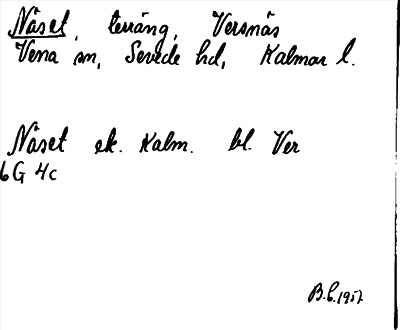 Näset, terräng, Versnäs
Vena sn, Sevede hd, Kalmar l.
Näset ek. Kalm. bl. Ver
6G 4c
B.C. 1957